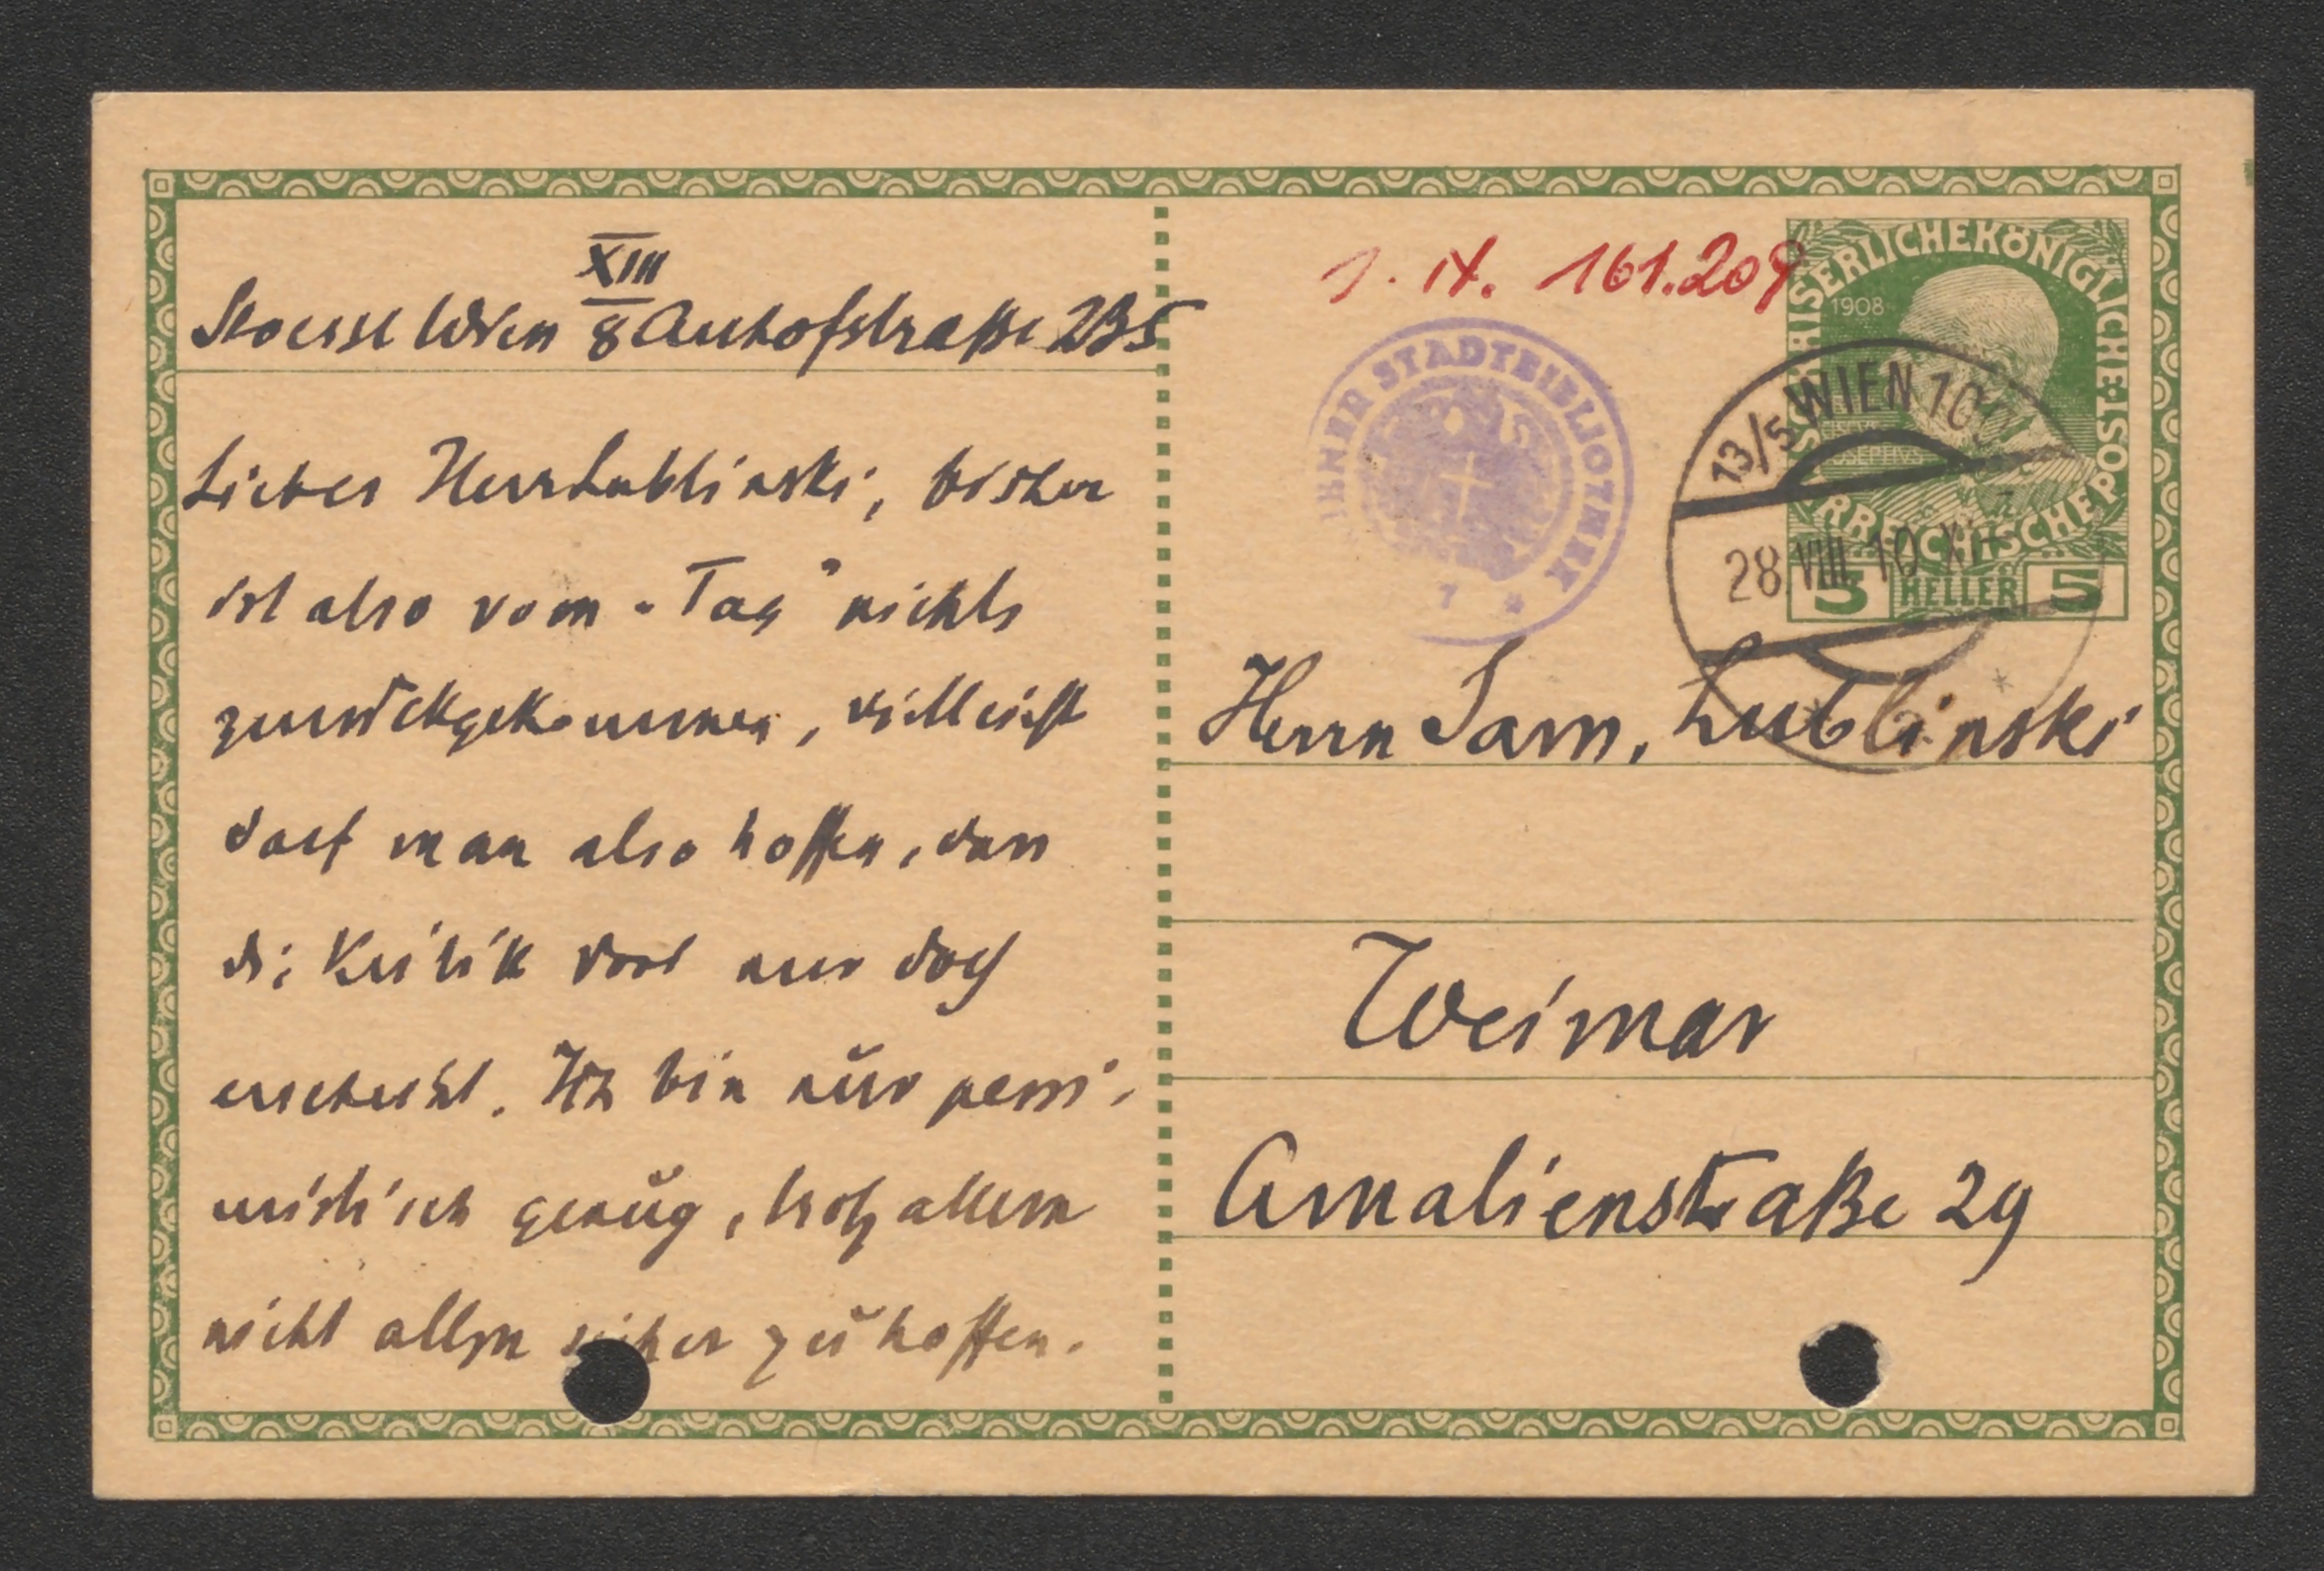 Stoessl Wien XIII/8 Auhofstraße 235
Lieber Herr Lublinski, bisher
ist also vom „Tag" nichts
zurückgekommen, vielleicht
darf man also hoffen, dass
die Kritik dort nur doch
erscheint. Ich bin nur pessi-
mistisch genug, trotz allem
nicht allzu sicher zu hoffen.
J. N. 161.209
KAISERLICHE KÖNIGLICHE POST
1908
ÖSTERREICHISCHE
5 HELLER 5
WIENER STADTBIBLIOTHEK
13/5 WIEN
28. VIII 10 XI
Herrn Sam. Lublinski
Weimar
Amalienstraße 29